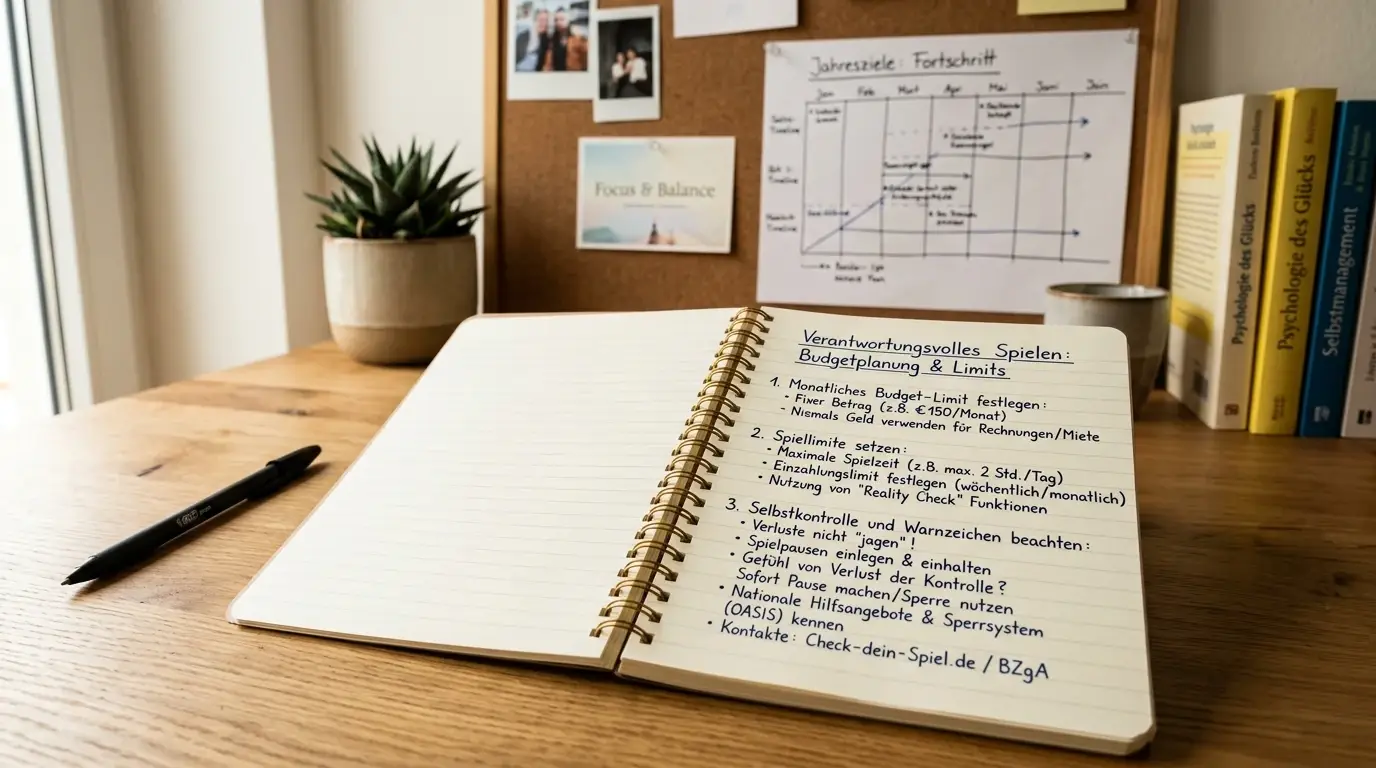 Jahresziele: Fortschritt
Jan Feb Mart Apr Mai Juni Join
Timeline
Timeline
Timeline
Focus & Balance
Psychologie des Glücks
Psychologie des Glücks
Selbstmanagement
Verantwortungsvolles Spielen:
Budgetplanung & Limits
1. Monatliches Budget-Limit festlegen:
- Fixer Betrag (z.B. €150/Monat)
- Nismals Geld verwenden für Rechnungen/Miete
2. Spiellimite setzen:
• Maximale Spielzeit (z.B. max. 2 Std./Tag)
• Einzahlungslimit festlegen (wöchentlich/monatlich)
• Nutzung von "Reality Check" Funktionen
3. Selbstkontrolle und Warnzeichen beachten:
• Verluste nicht "jagen"!
• Spielpausen einlegen & einhalten
• Gefühl von Verlust der Kontrolle?
Sofort Pause machen/Sperre nutzen
• Nationale Hilfsangebote & Sperrsystem
(OASIS) kennen
• Kontakte: Check-dein-Spiel.de / BZgA